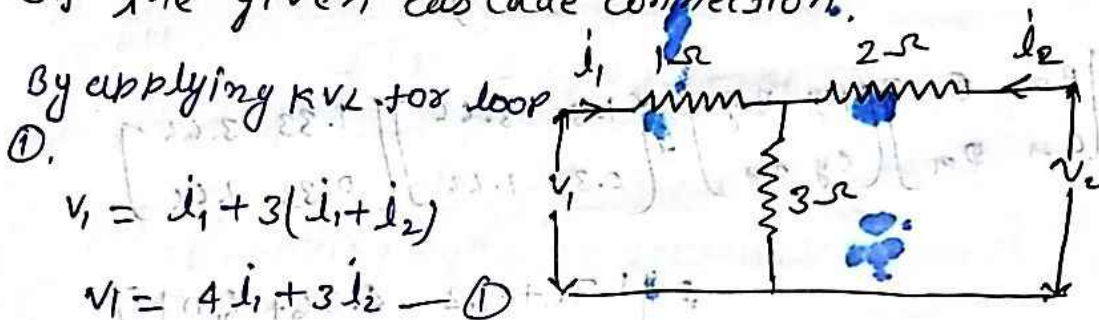 the given cascade connection.
By applying KVL for loop
①.
v₁ = i₁ + 3(i₁+i₂)
v₁ = 4i₁ + 3i₂ — ①
i₁ 1Ω 2Ω i₂
v₁ 3Ω v₂